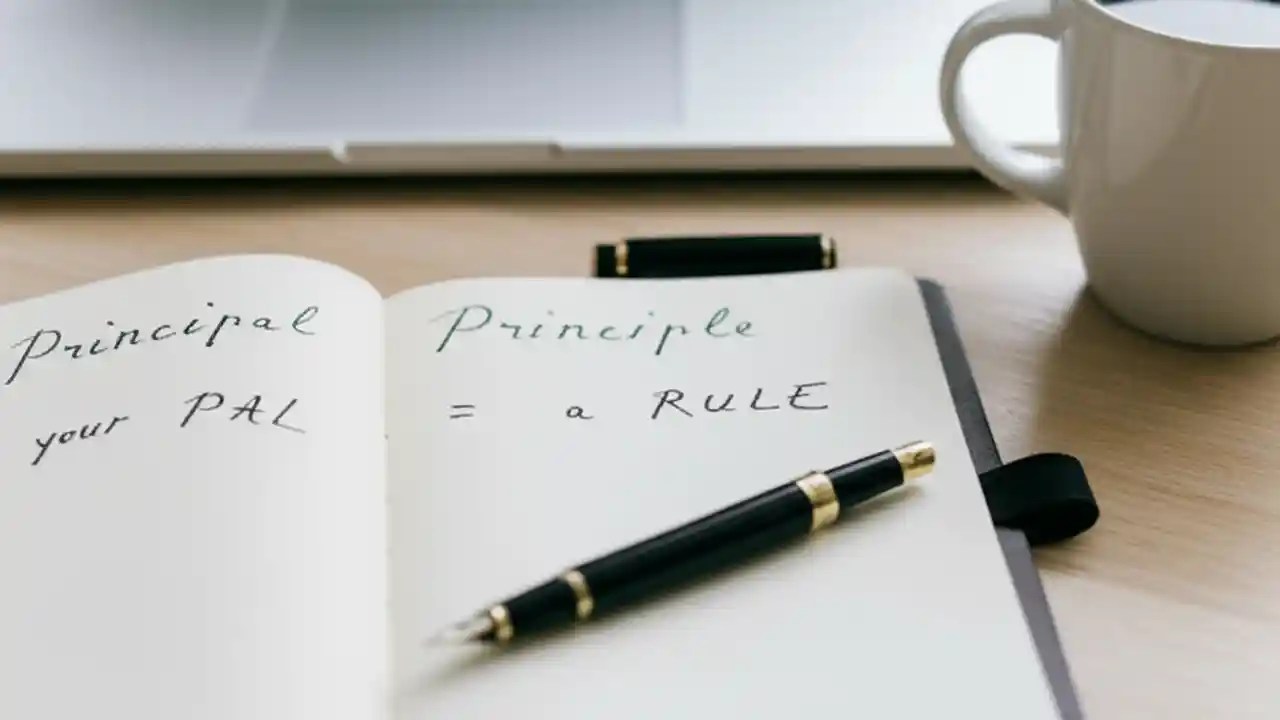 Principal
your PAL
Principle
= a RULE